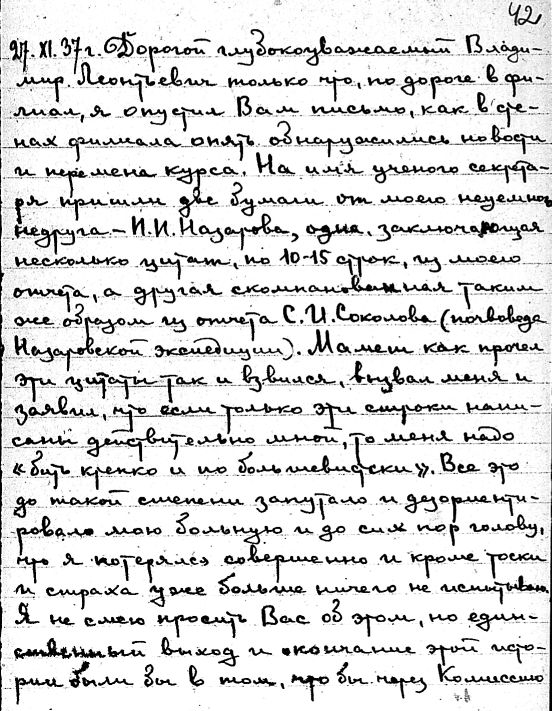 42
27.XI.37 г. Дорогой глубокоуважаемый Влади-
мир Леонтьевич только что, по дороге в фи-
лиал, я опустил Вам письмо, как в сте-
нах филиала опять обнаружились новости
и перемена курса. На имя ученого секрета-
ря пришли две бумаги от моего неуемного
недруга – И.И. Назарова, одна, заключающая
несколько цитат, по 10-15 строк, из моего
отчета, а другая скомпанованная таким
же образом из отчета С.И. Соколова (почвоведа
Назаровской экспедиции). Мамет как прочел
эти цитаты так и взвился, вызвал меня и
заявил, что если только эти строки напи-
саны действительно мной, то меня надо
«бить крепко и по большевистски». Все это
до такой степени запутало и дезориенти-
ровало мою больную и до сих пор голову,
что я потерялся совершенно и кроме тоски
и страха уже больше ничего не испытываю.
Я не смею просить Вас об этом, но един-
ственный выход и окончание этой исто-
рии были бы в том, что бы через Комиссию